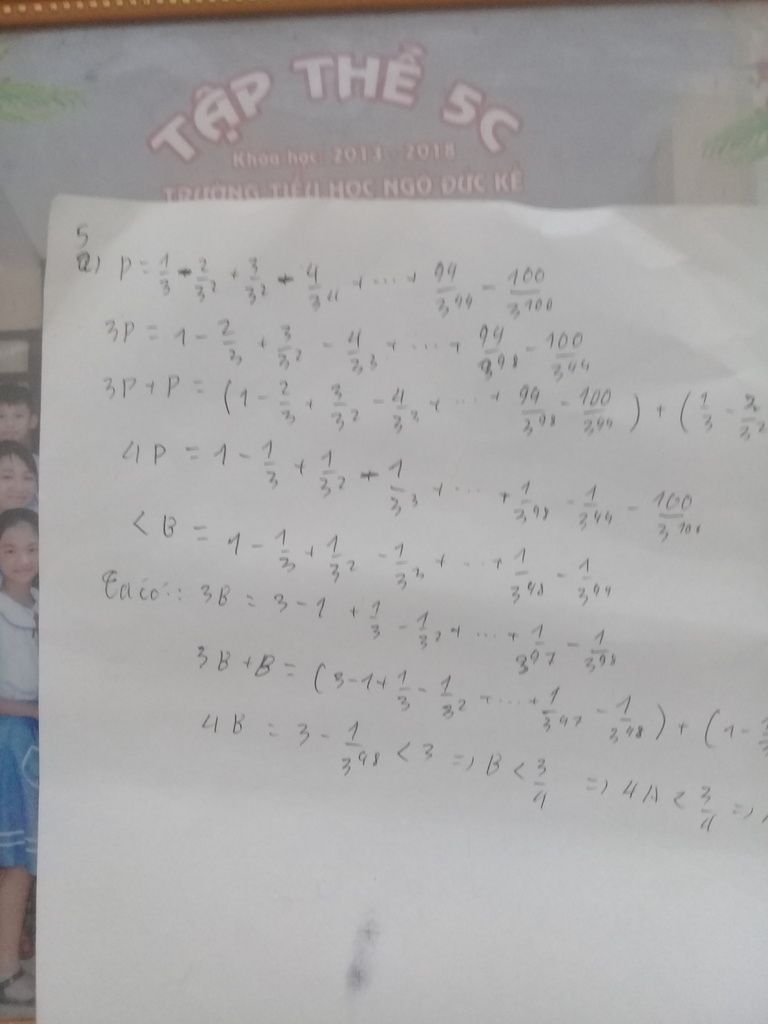 TẬP THỂ 5C
Khóa học 2013 - 2018
TRƯỜNG TIỂU HỌC NGÔ ĐỨC KẾ
5
a) P = 1/3 - 2/3² + 3/3² - 4/3⁴ + ... + 99/3⁹⁹ - 100/3¹⁰⁰
3P = 1 - 2/3 + 3/3² - 4/3³ + ... + 99/3⁹⁸ - 100/3⁹⁹
3P + P = (1 - 2/3 + 3/3² - 4/3³ + ... + 99/3⁹⁸ - 100/3⁹⁹) + (1/3 - 2/3²
4P = 1 - 1/3 + 1/3² - 1/3³ + ... + 1/3⁹⁸ - 1/3⁹⁹ - 100/3¹⁰⁰
< B = 1 - 1/3 + 1/3² - 1/3³ + ... + 1/3⁹⁸ - 1/3⁹⁹
Ta có : 3B = 3 - 1 + 1/3 - 1/3² + ... + 1/3⁹⁷ - 1/3⁹⁸
3B + B = (3 - 1 + 1/3 - 1/3² + ... + 1/3⁹⁷ - 1/3⁹⁸) + (1 - 1/3
4B = 3 - 1/3⁹⁸ < 3 => B < 3/4 => 4A < 3/4 =>